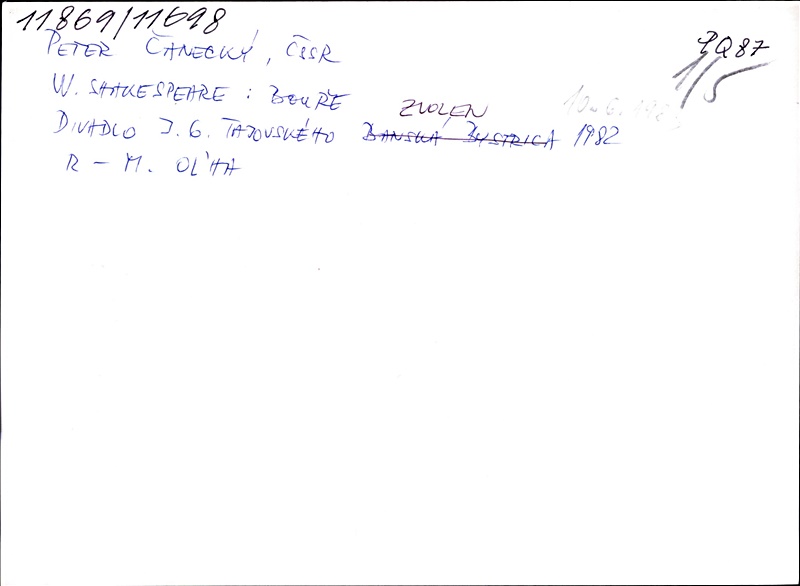 11869/11698
PETER ČANECKÝ, ČSSR
PQ87
1/5
W. SHAKESPEARE : BOUŘE
ZVOLEN
DIVADLO J. G. TAJOVSKÉHO BANSKÁ BYSTRICA 1982
R – M. OL'HA